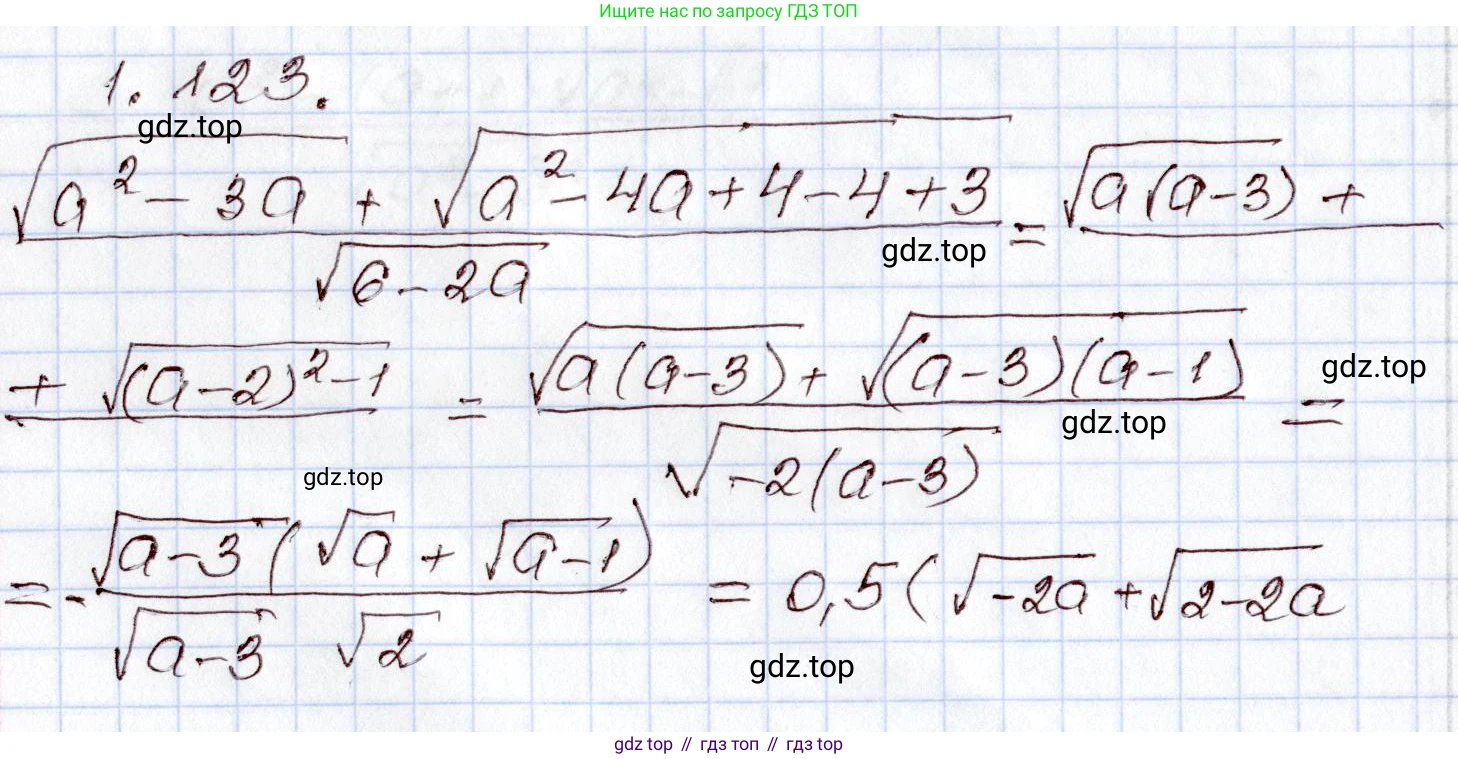 Ищите нас по запросу ГДЗ ТОП
1.123.
gdz.top
√(a² - 3a) + √(a² - 4a + 4 - 4 + 3) / √(6 - 2a) = √(a(a-3)) +
gdz.top
+ √((a-2)² - 1) = √(a(a-3)) + √((a-3)(a-1)) / √(-2(a-3)) =
gdz.top
gdz.top
gdz.top
= - √(a-3) (√a + √(a-1)) / √(a-3) √2 = 0,5 (√(-2a) + √(2-2a)
gdz.top
gdz top // гдз топ // гдз top